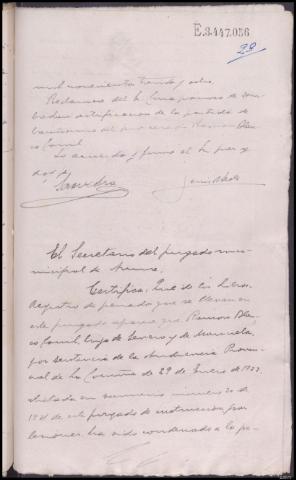 E.3.447.056
29
mil novecientos treinta y ocho
Reclamese del Sr. Cura párroco de
certificacion de la partida de
bautismo del procesado Ramon Blan-
co Comil.
Lo acuerda y firma el Sr. juez y
doy fe.
Saavedra
El Secretario del juzgado mu-
nicipal de
Certifico: Que de los libros
Registro de penados que se llevan en
este juzgado aparece que Ramon Blan-
co Comil, hijo de Severo y de Manuela,
por sentencia de la Audiencia Provin-
cial de La Coruña de 29 de Enero de 1933,
dictada en sumario numero 20 de
1931 de este juzgado de instruccion por
lesiones, ha sido condenado a la pe-